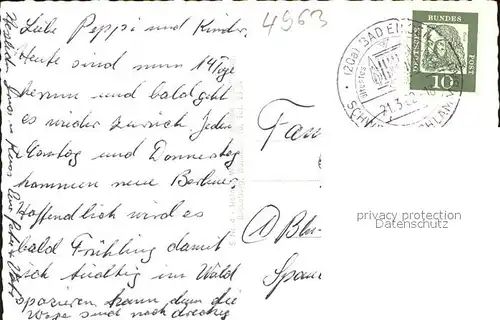 4963
Liebe Peppi und Kinder.
Heute sind nun 14 Tage
herum und bald geht
es wieder zurück. Jeden
Montag und Donnerstag
kommen neue Berliner.
Hoffendlich wird es
bald Frühling damit
ich tüchtig im Wald
spazieren kann denn die
Wege sind noch dreckig
Fam
① Bln-
Span
(20a) BAD EI
SCHW
21.3.62
DEUTSCHE BUNDESPOST
10
privacy protection
Datenschutz